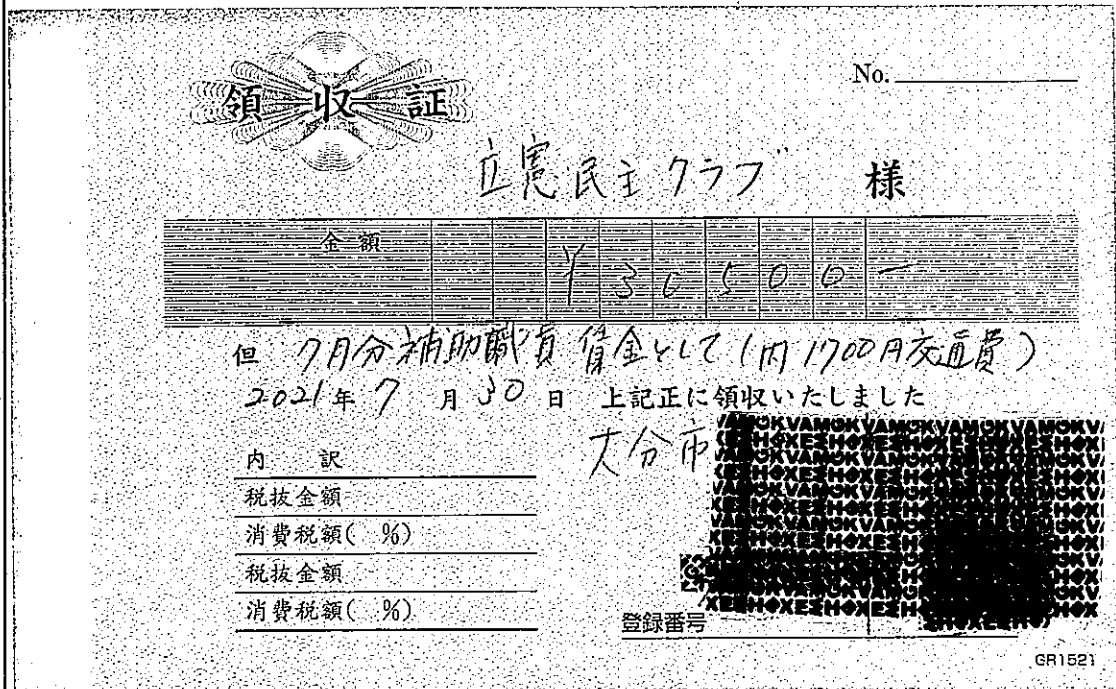 領収証
No.
立憲民主クラブ 様
金額
¥30500-
但 7月分補助職員賃金として(内1700円交通費)
2021年7月30日 上記正に領収いたしました
大分市
内訳
税抜金額
消費税額( %)
税抜金額
消費税額( %)
登録番号
GR1521